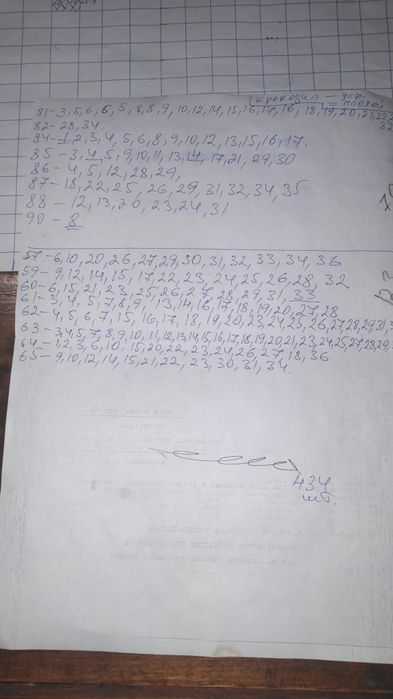 (крокодил — деф.
= плохой
81-3,5,6,6,5,8,8,9,10,12,14,15,16,17,16,18,19,20,21,22
82-28,34.
84-1,2,3,4,5,6,8,9,10,12,13,15,16,17.
85-3,4,5,9,10,11,13,14,17,21,29,30
86-4,5,12,28,29,
87-18,22,25,26,29,31,32,34,35
88-12,13,20,23,24,31
90-8
57-6,10,20,26,27,29,30,31,32,33,34,36
59-9,12,14,15,17,22,23,24,25,26,28,32
60-6,15,21,23,25,26,27,28,29,31,33
61-3,4,5,7,8,9,13,14,16,17,18,19,20,27,28
62-4,5,6,7,15,16,17,18,19,20,23,24,25,26,27,28,29,31,
63-3,4,5,7,8,9,10,11,12,13,14,15,16,17,18,19,20,21,23,24,25,27,28,29,
64-1,2,3,6,10,15,20,22,23,24,26,27,18,36
65-9,10,12,14,15,21,22,23,30,31,34.
434
шт.